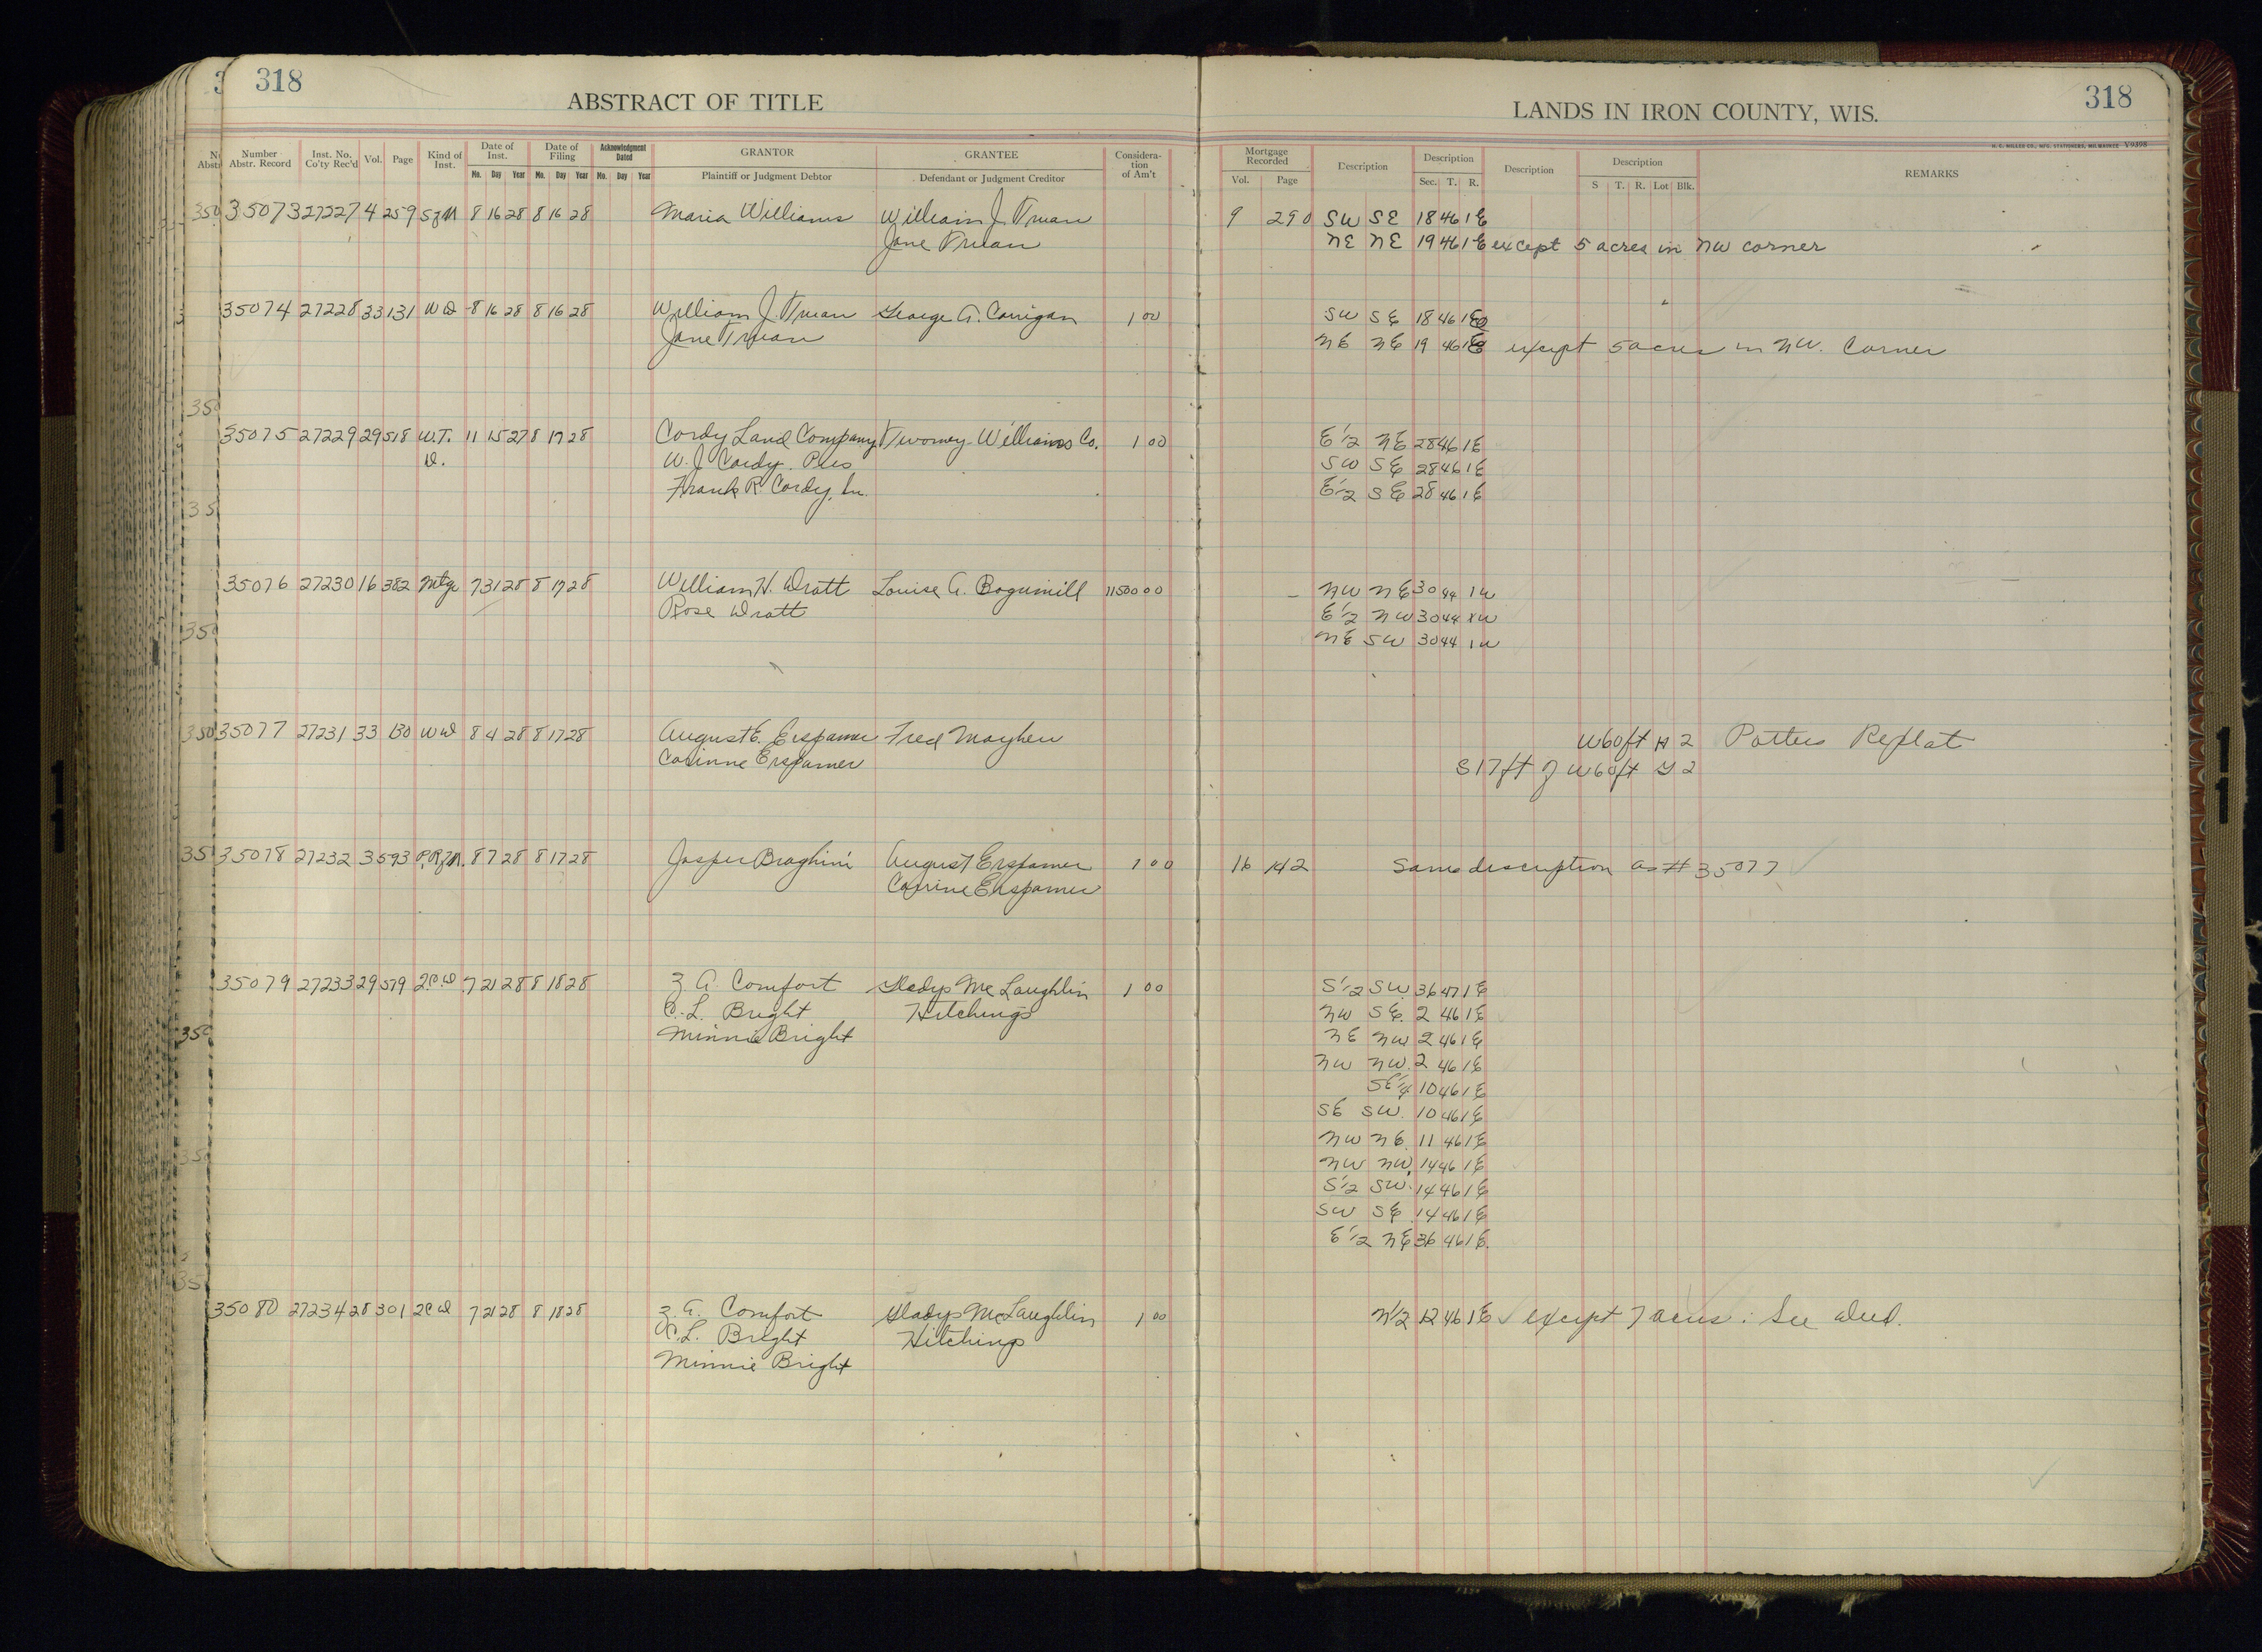 318
ABSTRACT OF TITLE
LANDS IN IRON COUNTY, WIS.
318
Number Abstr. Record Inst. No. Co'ty Rec'd Vol. Page Kind of Inst. Date of Inst. Mo. Day Year Date of Filing Mo. Day Year Acknowledgment Dated Mo. Day Year GRANTOR Plaintiff or Judgment Debtor GRANTEE Defendant or Judgment Creditor Consideration of Am't
Mortgage Recorded Vol. Page Description Description Sec. T. R. Description Description S T. R. Lot Blk. REMARKS
H. C. MILLER CO., MFG. STATIONERS, MILWAUKEE V9398
35073 27227 4 259 8 16 28 8 16 28 Maria Williams William J. Truan 9 290 SW SE 18 46 1 E
Jane Truan NE NE 19 46 1 E except 5 acres in NW corner
35074 27228 33 131 WD 8 16 28 8 16 28 William J. Truan George A. Corrigan 1 00 SW SE 18 46 1 E
Jane Truan NE NE 19 46 1 E except 5 acres in NW. Corner
35075 27229 29 518 W.T. 11 15 27 8 17 28 Cordy Land Company Twomey Williams Co. 1 00 E½ NE 28 46 1 E
D. W. J. Cordy. Pres SW SE 28 46 1 E
Frank R. Cordy, E½ SE 28 46 1 E
35076 27230 16 382 Mtge 7 31 28 8 17 28 William H. Dratt Louise A. Bogumill 11500 00 NW NE 30 44 1 W
Rose Dratt E½ NW 30 44 1 W
NE SW 30 44 1 W
35077 27231 33 130 WD 8 4 28 8 17 28 August E. Erspamer Fred Mayhew W60ft H 2 Potters Replat
Corinne Erspamer S 17ft of W60ft G 2
35078 27232 3 593 8 7 28 8 17 28 Jasper Braghini August Erspamer 1 00 16 142 Same description as # 35077
Corrine Erspamer
35079 27233 29 579 2.C.D. 7 21 28 8 18 28 Z. A. Comfort Gladys McLaughlin 1 00 S½ SW. 36 47 1 E
C. L. Bright Hitchings NW SE. 2 46 1 E
Minnie Bright NE NW 2 46 1 E
NW NW. 2 46 1 E
SE¼ 10 46 1 E
SE SW. 10 46 1 E
NW NE. 11 46 1 E
NW NW. 14 46 1 E
S½ SW. 14 46 1 E
SW SE. 14 46 1 E
E½ NE 36 46 1 E.
35080 27234 28 301 2CD 7 21 28 8 18 28 Z. A. Comfort Gladys McLaughlin 1 00 N½ 12 46 1 E except 7 acres: See deed.
C. L. Bright Hitchings
Minnie Bright